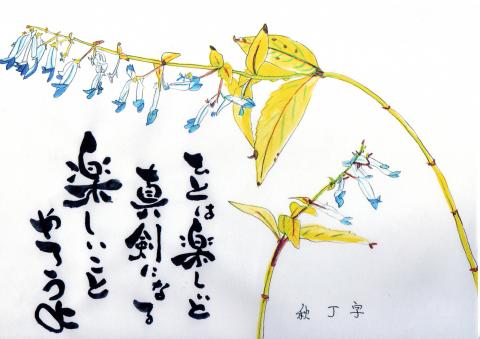 ひとは楽しいと
真剣になる
楽しいこと
やろうよ
秋丁字